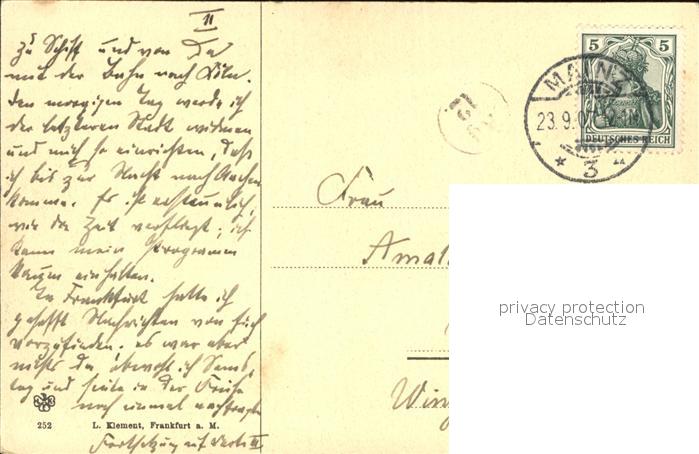 II
zu Schiff und von Da
mit der Bahn nach Köln.
Den morgigen Tag werde ich
der letzteren Stadt widmen
und mich so einrichten, daß
ich bis zur Nacht nach Aachen
komme. Es ist erstaunlich,
wie die Zeit verfliegt; ich
kann mein Programm
kaum einhalten.
In Frankfurt hatte ich
gehofft Nachrichten von Euch
vorzufinden. es war aber
nichts da, obwohl ich Sams
tag und heute in der Frühe
noch einmal nachfragte
252 L. Klement, Frankfurt a. M.
Fortsetzung auf Karte III
5 5
DEUTSCHES REICH
MAINZ
23.9.07
* 3
Frau
Amal
privacy protection
Datenschutz